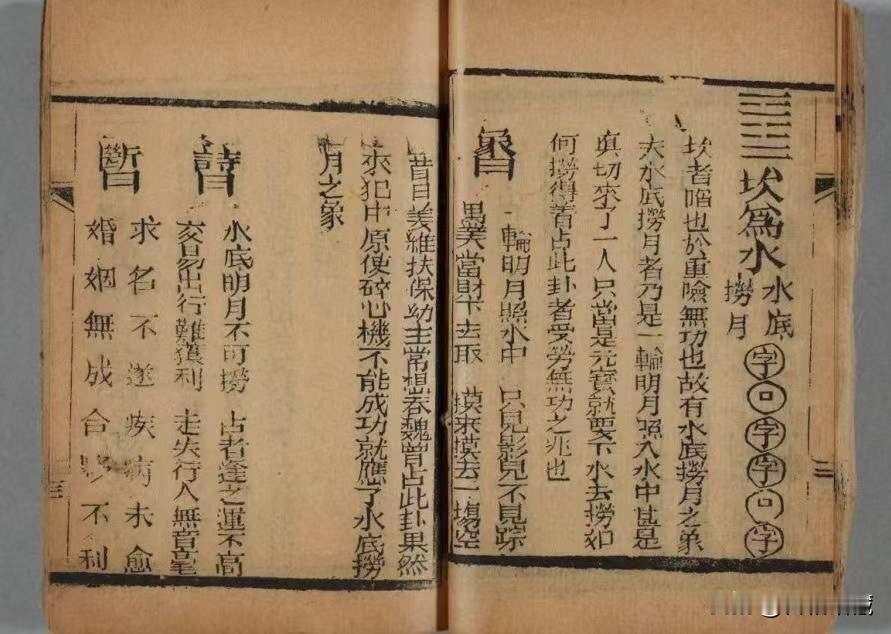 坎為水
水底
撈月
字口字字口字
坎者陷也於重險無功也故有水底撈月之象
夫水底撈月者乃是一輪明月照入水中甚是
真切來了一人只當是元寶就要下水去撈如
何撈得着占此卦者受勞無功之兆也
象曰
一輪明月照水中 只見影兒不見踪
愚夫當財下去取 摸來摸去一場空
昔日姜維扶保幼主常想吞魏曾占此卦果然
來犯中原使碎心機不能成功就應了水底撈
月之象
詩曰
水底明月不可撈 占者逢之運不高
交易出行難獲利 走失行人無音毫
斷曰
求名不遂疾病未愈
婚姻無成合夥不利
三
三